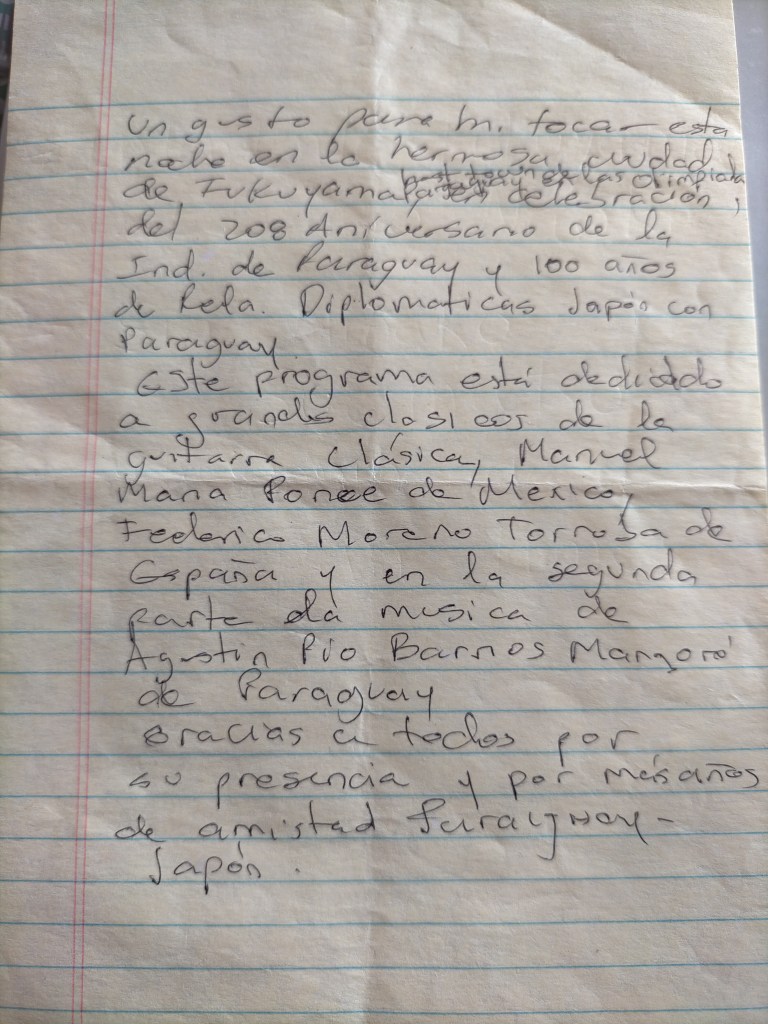 Un gusto para mi tocar esta
noche en la hermosa ciudad
host town en las Olimpiada
de Fukuyama celebración,
del 208 Aniversario de la
Ind. de Paraguay y 100 años
de Rela. Diplomaticas Japón con
Paraguay
Este programa está dedicado
a grandes clasicos de la
guitarra Clásica, Manuel
Maria Ponce de Mexico,
Federico Moreno Torroba de
España y en la segunda
parte la musica de
Agustin Pio Barrios Mangoré
de Paraguay
Gracias a todos por
su presencia y por más años
de amistad Paraguay-
Japón.